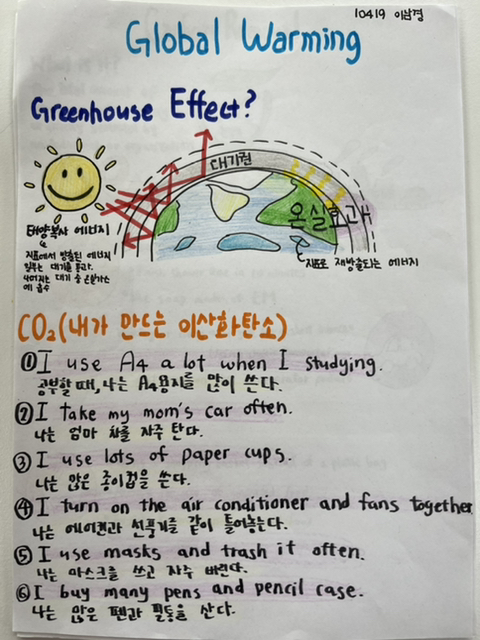 10419 이남경
Global Warming
Greenhouse Effect?
대기권
온실효과
태양복사 에너지
지표에서 방출된 에너지
일부는 대기를 통과.
나머지는 대기 중 온실가스
에 흡수
지표로 재방출되는 에너지
CO₂(내가 만드는 이산화탄소)
① I use A4 a lot when I studying.
공부할 때, 나는 A4용지를 많이 쓴다.
② I take my mom's car often.
나는 엄마 차를 자주 탄다.
③ I use lots of paper cups.
나는 많은 종이컵을 쓴다.
④ I turn on the air conditioner and fans together
나는 에어컨과 선풍기를 같이 틀어놓는다.
⑤ I use masks and trash it often.
나는 마스크를 쓰고 자주 버린다.
⑥ I buy many pens and pencil case.
나는 많은 펜과 필통을 산다.